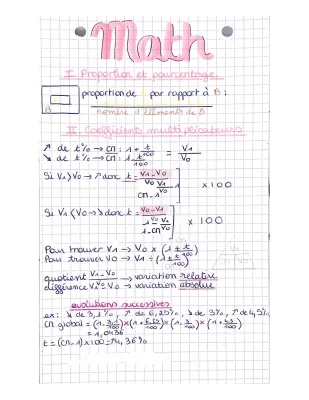 Math
I. Proportion et pourcentage
proportion de par rapport à B :
nombre d'éléments de B
B
II. Coefficients multiplicateurs
↗ de t% → CM : 1 + t/100 = V1/V0
↘ de t% → CM : 1 - t/100
Si V1 > V0 → ↗ donc t = V1 - V0 / V0
CM - 1 ] x 100
Si V1 < V0 → ↘ donc t = V0 - V1 / V0
1 - V1/V0 ] x 100
1 - CM
Pour trouver V1 → V0 x (1 ± t/100)
Pour trouver V0 → V1 ÷ (1 ± t/100)
quotient V1 - V0 / V0 → variation relative
différence V1 - V0 → variation absolue
évolutions successives
ex : ↘ de 3,1%, ↗ de 6,25%, ↘ de 3%, ↗ de 4,5%
CM global =
= 1,0436
t = (CM - 1) x 100 = 4,36%